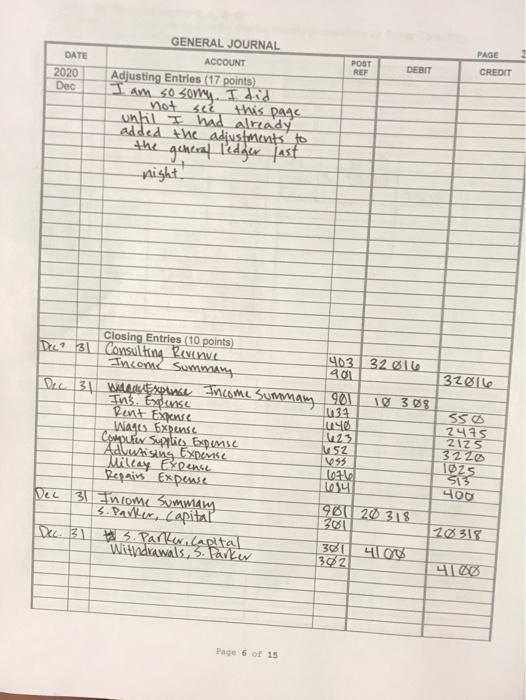 GENERAL JOURNAL
PAGE 3
DATE ACCOUNT POST REF DEBIT CREDIT
2020 Adjusting Entries (17 points)
Dec I am so sorry. I did
not see this page
until I had already
added the adjustments to
the general ledger last
night!
Closing Entries (10 points)
Dec 31 Consulting Revenue 403 32016
Income Summary 901 32016
Dec 31 Income Summary 901 10 308
Ins. Expense 637 550
Rent Expense 640 2475
Wages Expense 623 2125
Computer Supplies Expense 652 3220
Advertising Expense 655 1025
Mileage Expense 676 513
Repairs Expense 684 400
Dec 31 Income Summary 901 20 318
S. Parker, Capital 301 20318
Dec. 31 S. Parker, Capital 301 4100
Withdrawals, S. Parker 302 4100
Page 6 of 15